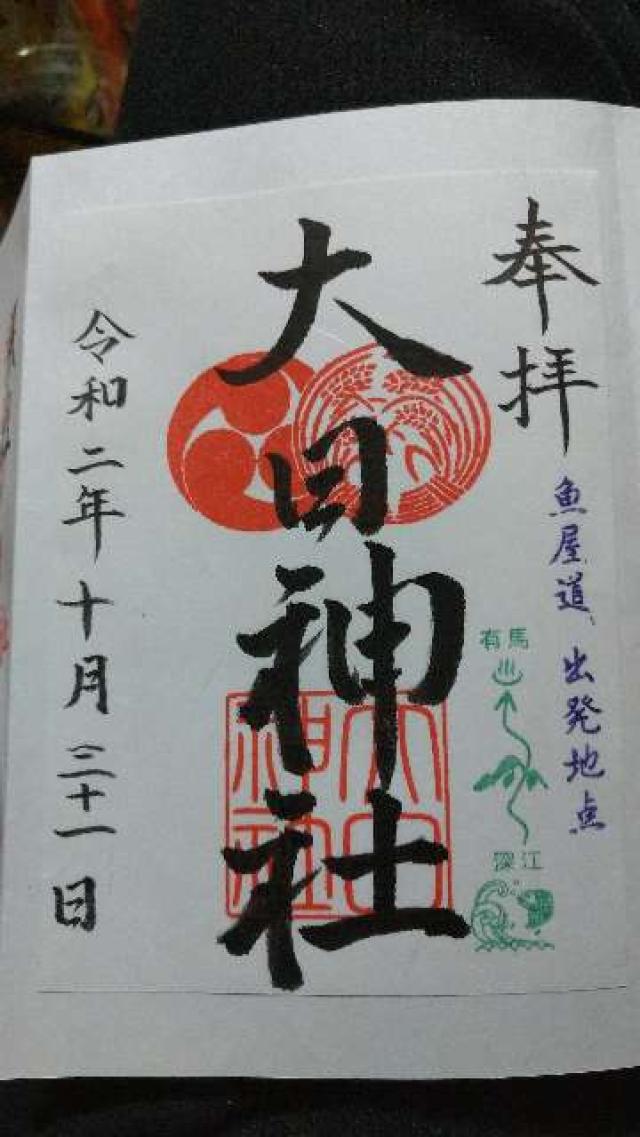 奉拝
魚屋道 出発地点
有馬
深江
大日神社
大日神社
令和二年十月三十一日